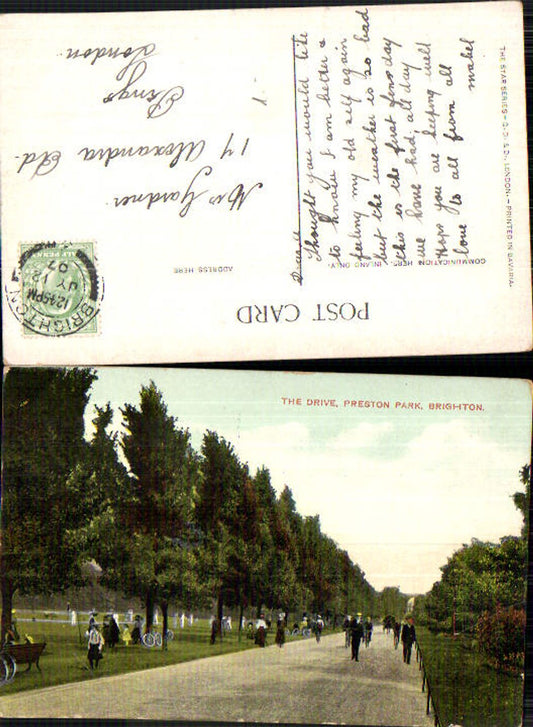 POST CARD
COMMUNICATION HERE. INLAND ONLY.
ADDRESS HERE
Thought you would like
to know I am better &
feeling my old self again
but the weather is so bad
this is the first fine day
we have had all day
Hope you are keeping well
love to all from all
mabel
Mrs Gardner
17 Alexandra Rd.
Penge
London
BRIGHTON
12.45PM
JY
07
THE STAR SERIES - G.D. & D., LONDON. - PRINTED IN BAVARIA.
THE DRIVE, PRESTON PARK, BRIGHTON.